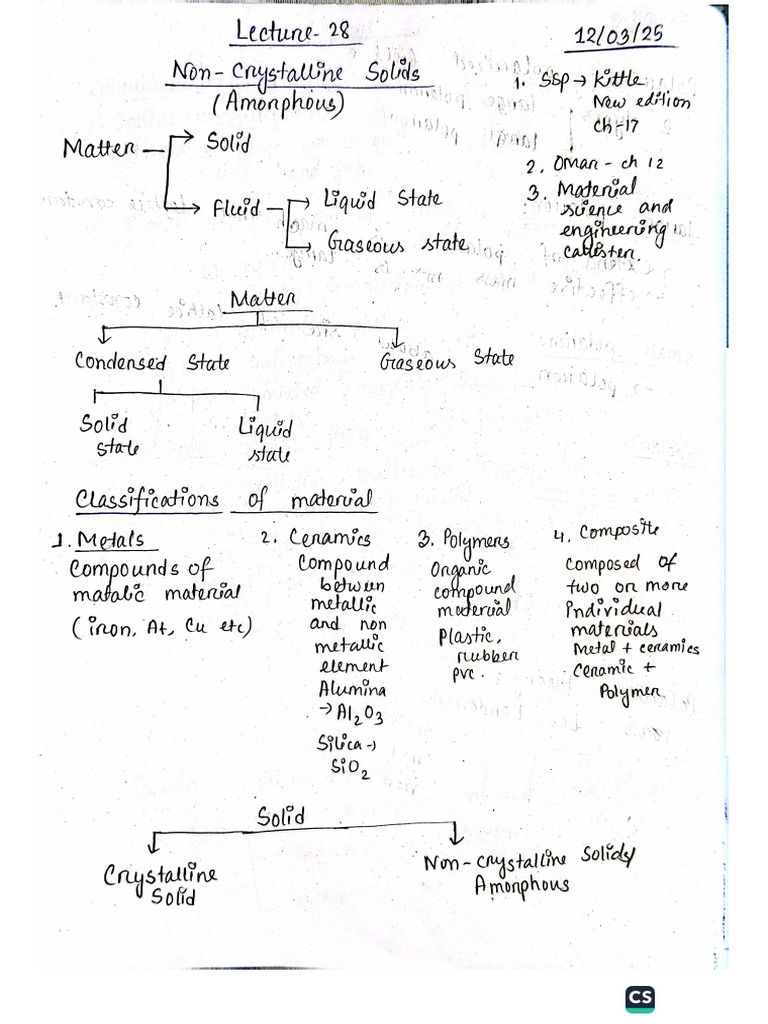 Lecture-28
12/03/25
Non-Crystalline Solids
(Amorphous)
1. SSP → Kittle
New edition
Ch-17
2. Omar - ch 12
3. Material
science and
engineering
Matter
Solid
Fluid
Liquid State
Gaseous state
Matter
Condensed State
Gaseous State
Solid
state
Liquid
state
Classifications of material
1. Metals
Compounds of
matalic material
(iron, At, Cu etc)
2. Ceramics
Compound
between
metallic
and non
metallic
element
Alumina
→ Al2O3
Silica →
SiO2
3. Polymers
Organic
compound
material
Plastic,
rubber
PVC.
4. Composite
Composed of
two or more
individual
materials
Metal + ceramics
Ceramic +
Polymer
Solid
Crystalline
Solid
Non-crystalline Solids/
Amorphous
CS